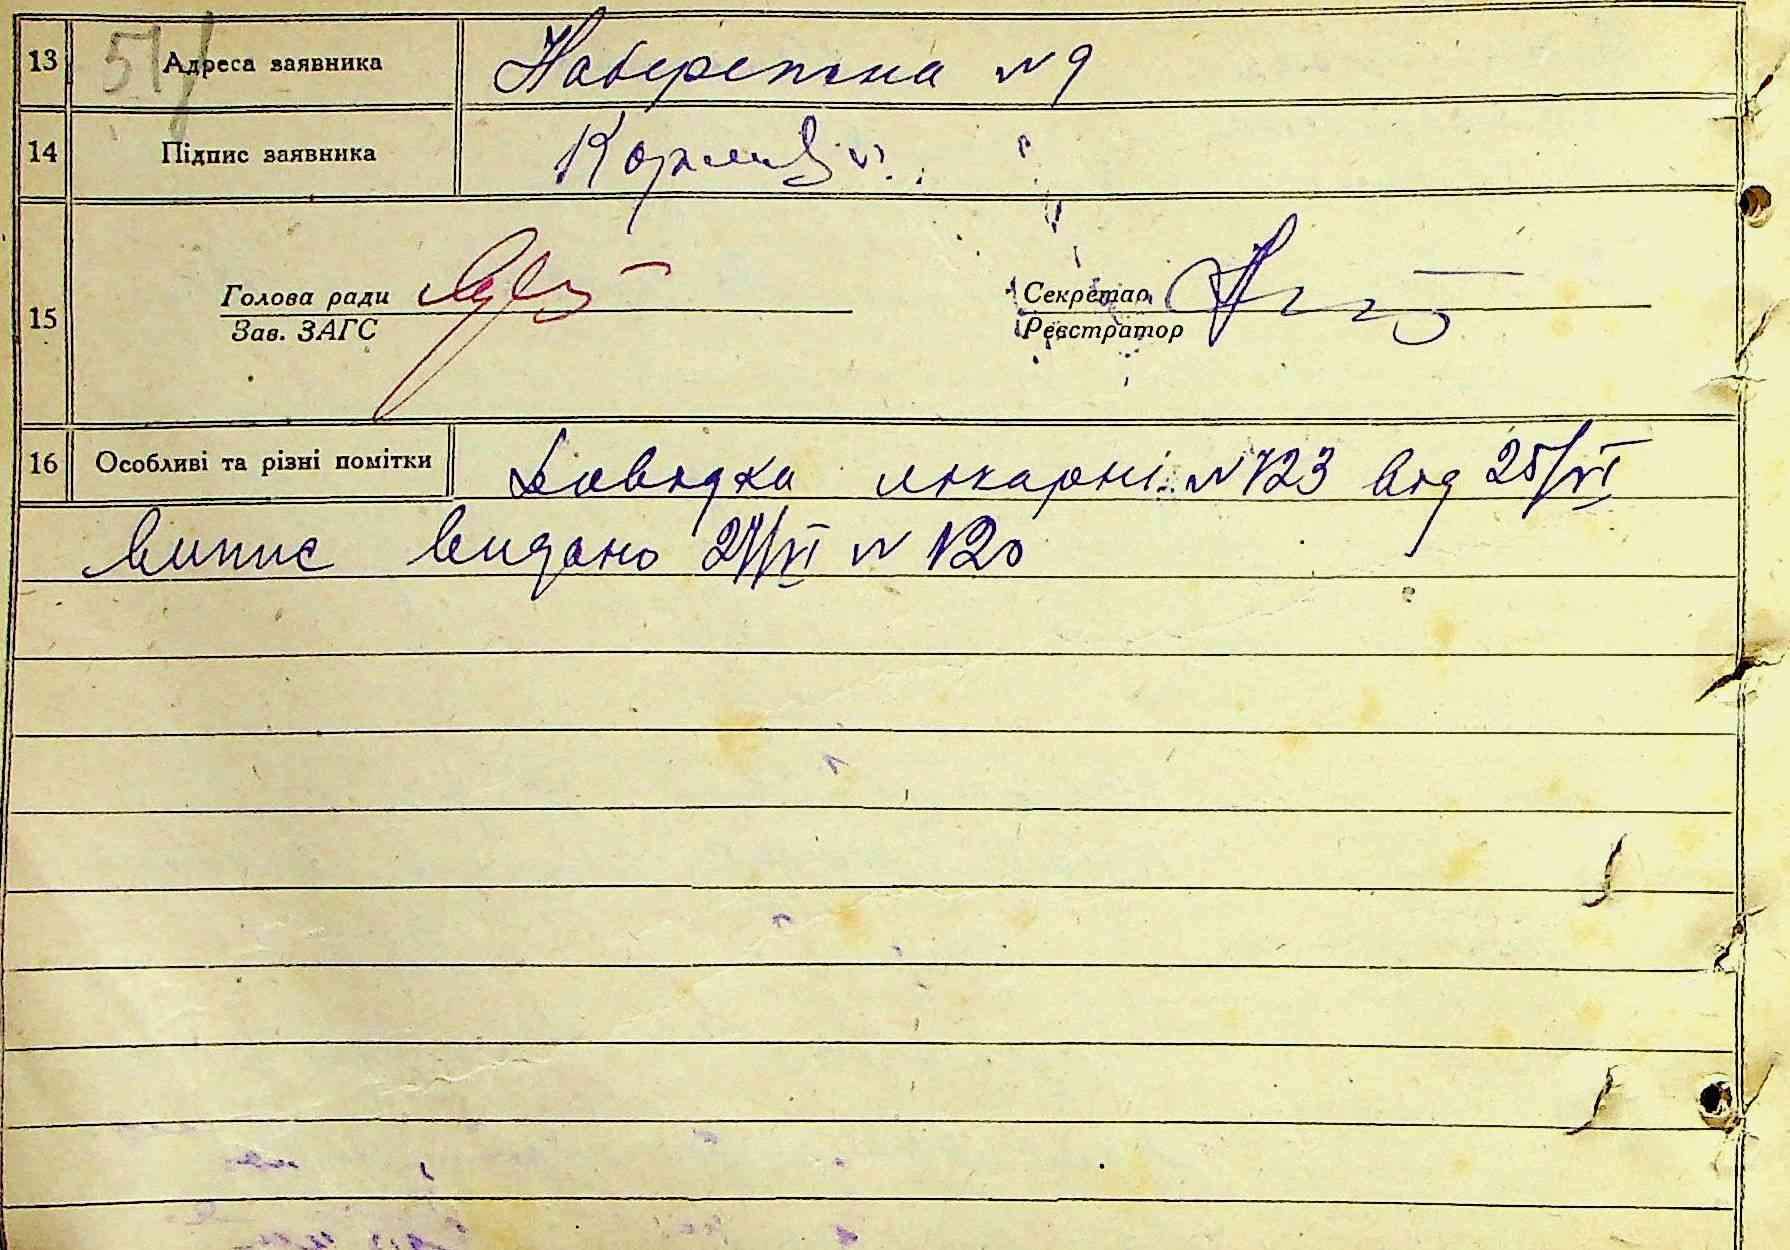 51/
13 Адреса заявника Набережна № 9
14 Підпис заявника
Голова ради Секретар
15 Зав. ЗАГС Реєстратор
16 Особливі та різні помітки Довідка лікарні № 123 від 25/VI
Випис видано 27/VI № 120